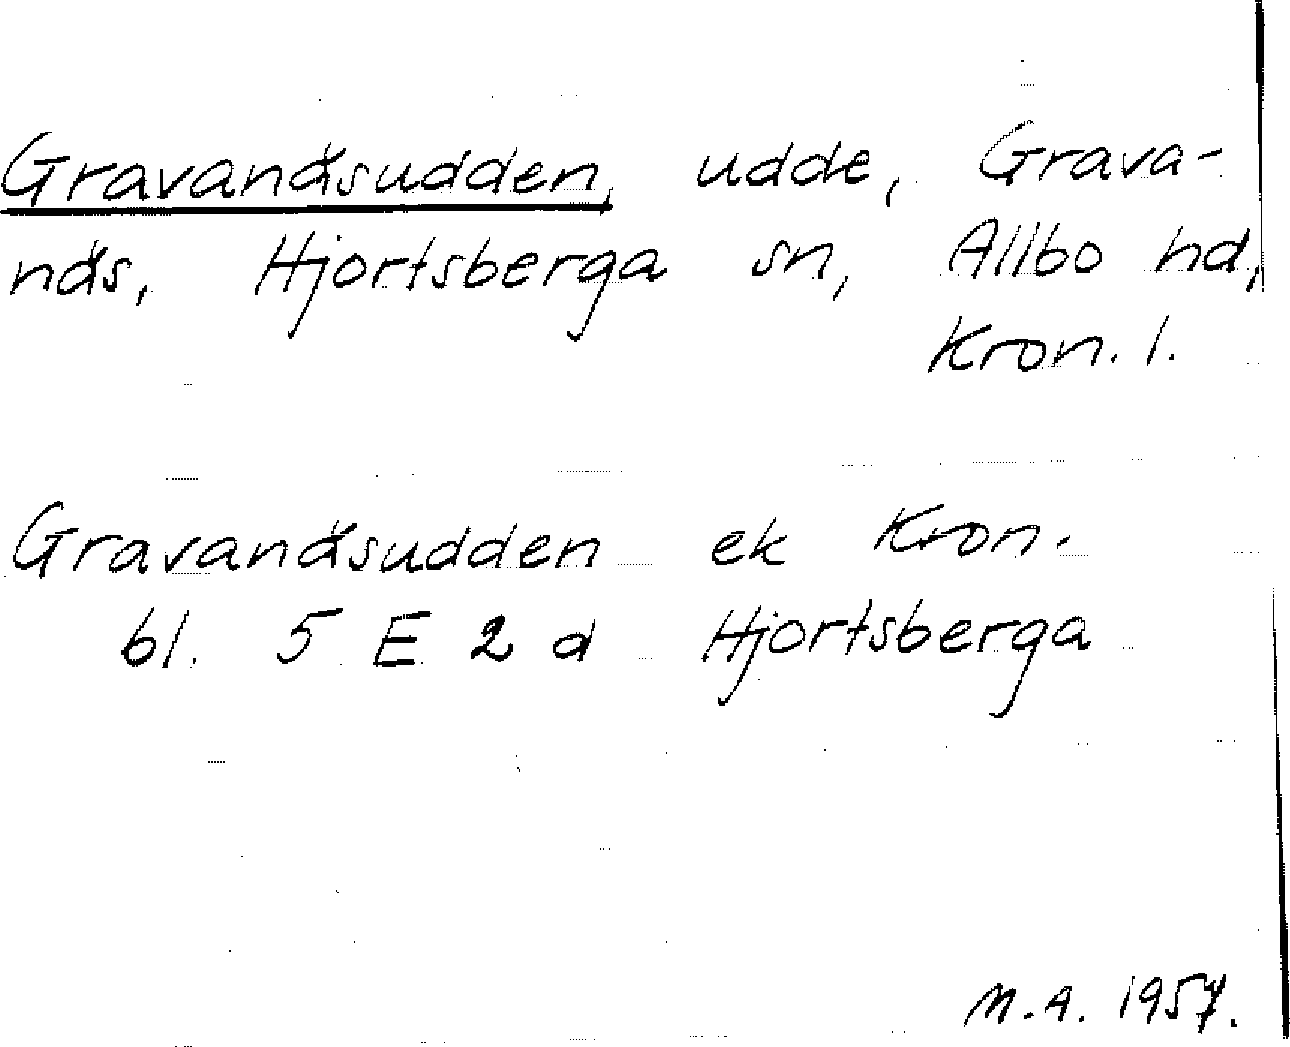 Gravanäsudden, udde, Grava-
näs, Hjortsberga sn, Allbo hd,
Kron. l.
Gravanäsudden ek Kron.
bl. 5 E 2 d Hjortsberga
M.A. 1957.